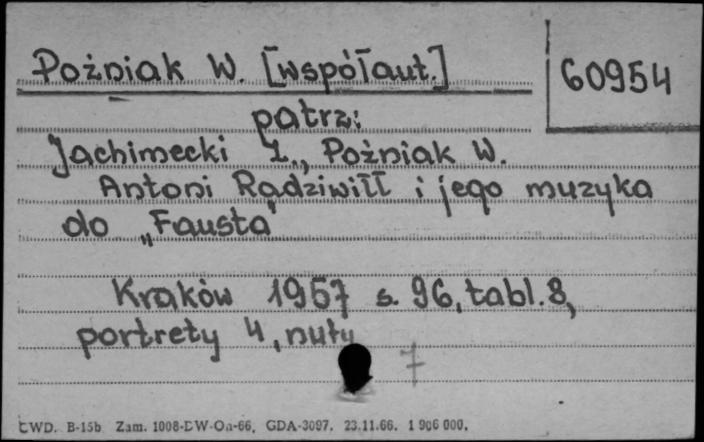 Poźniak W. [współaut.]
60954
patrz:
Jachimecki Z., Poźniak W.
Antoni Radziwiłł i jego muzyka
do „Fausta"
Kraków 1957 s. 96, tabl. 8,
portrety 4, nuty
7
CWD. B-15b Zam. 1008-DW-Oa-66. GDA-3097. 23.11.66. 1 906 000.